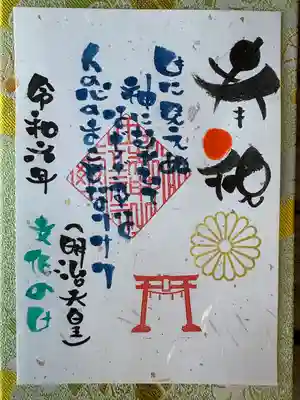 奉祝
目に見えぬ
神にむかひて
はぢざるは
人の心のまことなりけり
(明治天皇)
令和六年
文化の日